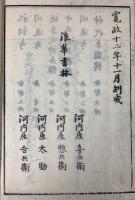 寛政十二年十一月刻成
浪華書林
河内屋喜兵衛
河内屋惣兵衛
河内屋太助
河内屋吉兵衛